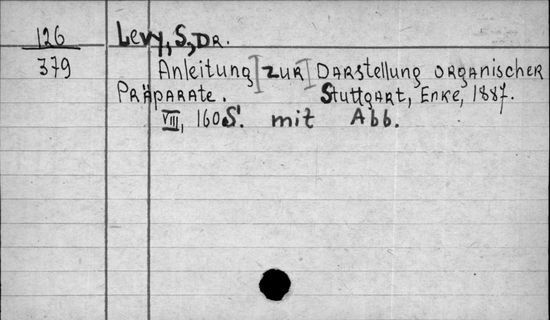 126 Levy, S, Dr.
379 Anleitung [zur] Darstellung organischer
Präparate. Stuttgart, Enke, 1887.
VIII, 160 S. mit Abb.